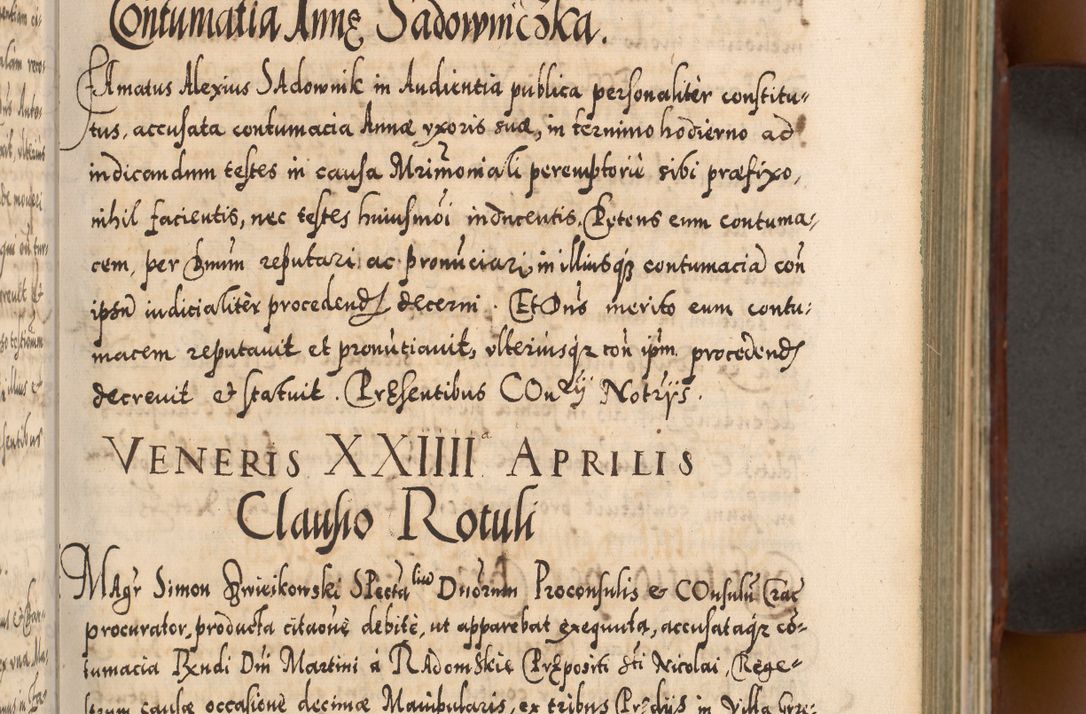 Contumatia Annę Sadowniczka.
Famatus Alexius SAdownik in Audientia publica personalitèr constitu-
tus, accusata contumacia Annæ vxoris suæ, in termino hodierno ad
indicandum testes in causa Mrimoniali peremptoriè sibi præfixo,
nihil facientis, nec testes huiusmoi inducentis. Petens eum contuma-
cem, per Dnum reputari ac pronuciari, in illiusq3 contumaciā con
ipsū iudicialitèr procedend decerni. Et Dns merito eum contu-
macem reputauit et pronutiauit, vlteriusq3 con ipm procedend
decreuit & statuit. PrESentibus COnzÿ Notrÿs.
VENERIS XXIIIIa APRILIS
Clausio Rotuli
MAgr Simon SPecta liu Dnorum Proconsulis & COnsulū Crac
procurator, producta citaone debitè, ut apparebat exequuta, accusataq3 cō-
tumacia Rxndi Dni Martini à RAdomskie Præpositi sti Nicolai, Rege-
strum causæ occasione decimæ Manipularis, ex tribus Prædijs in Villa